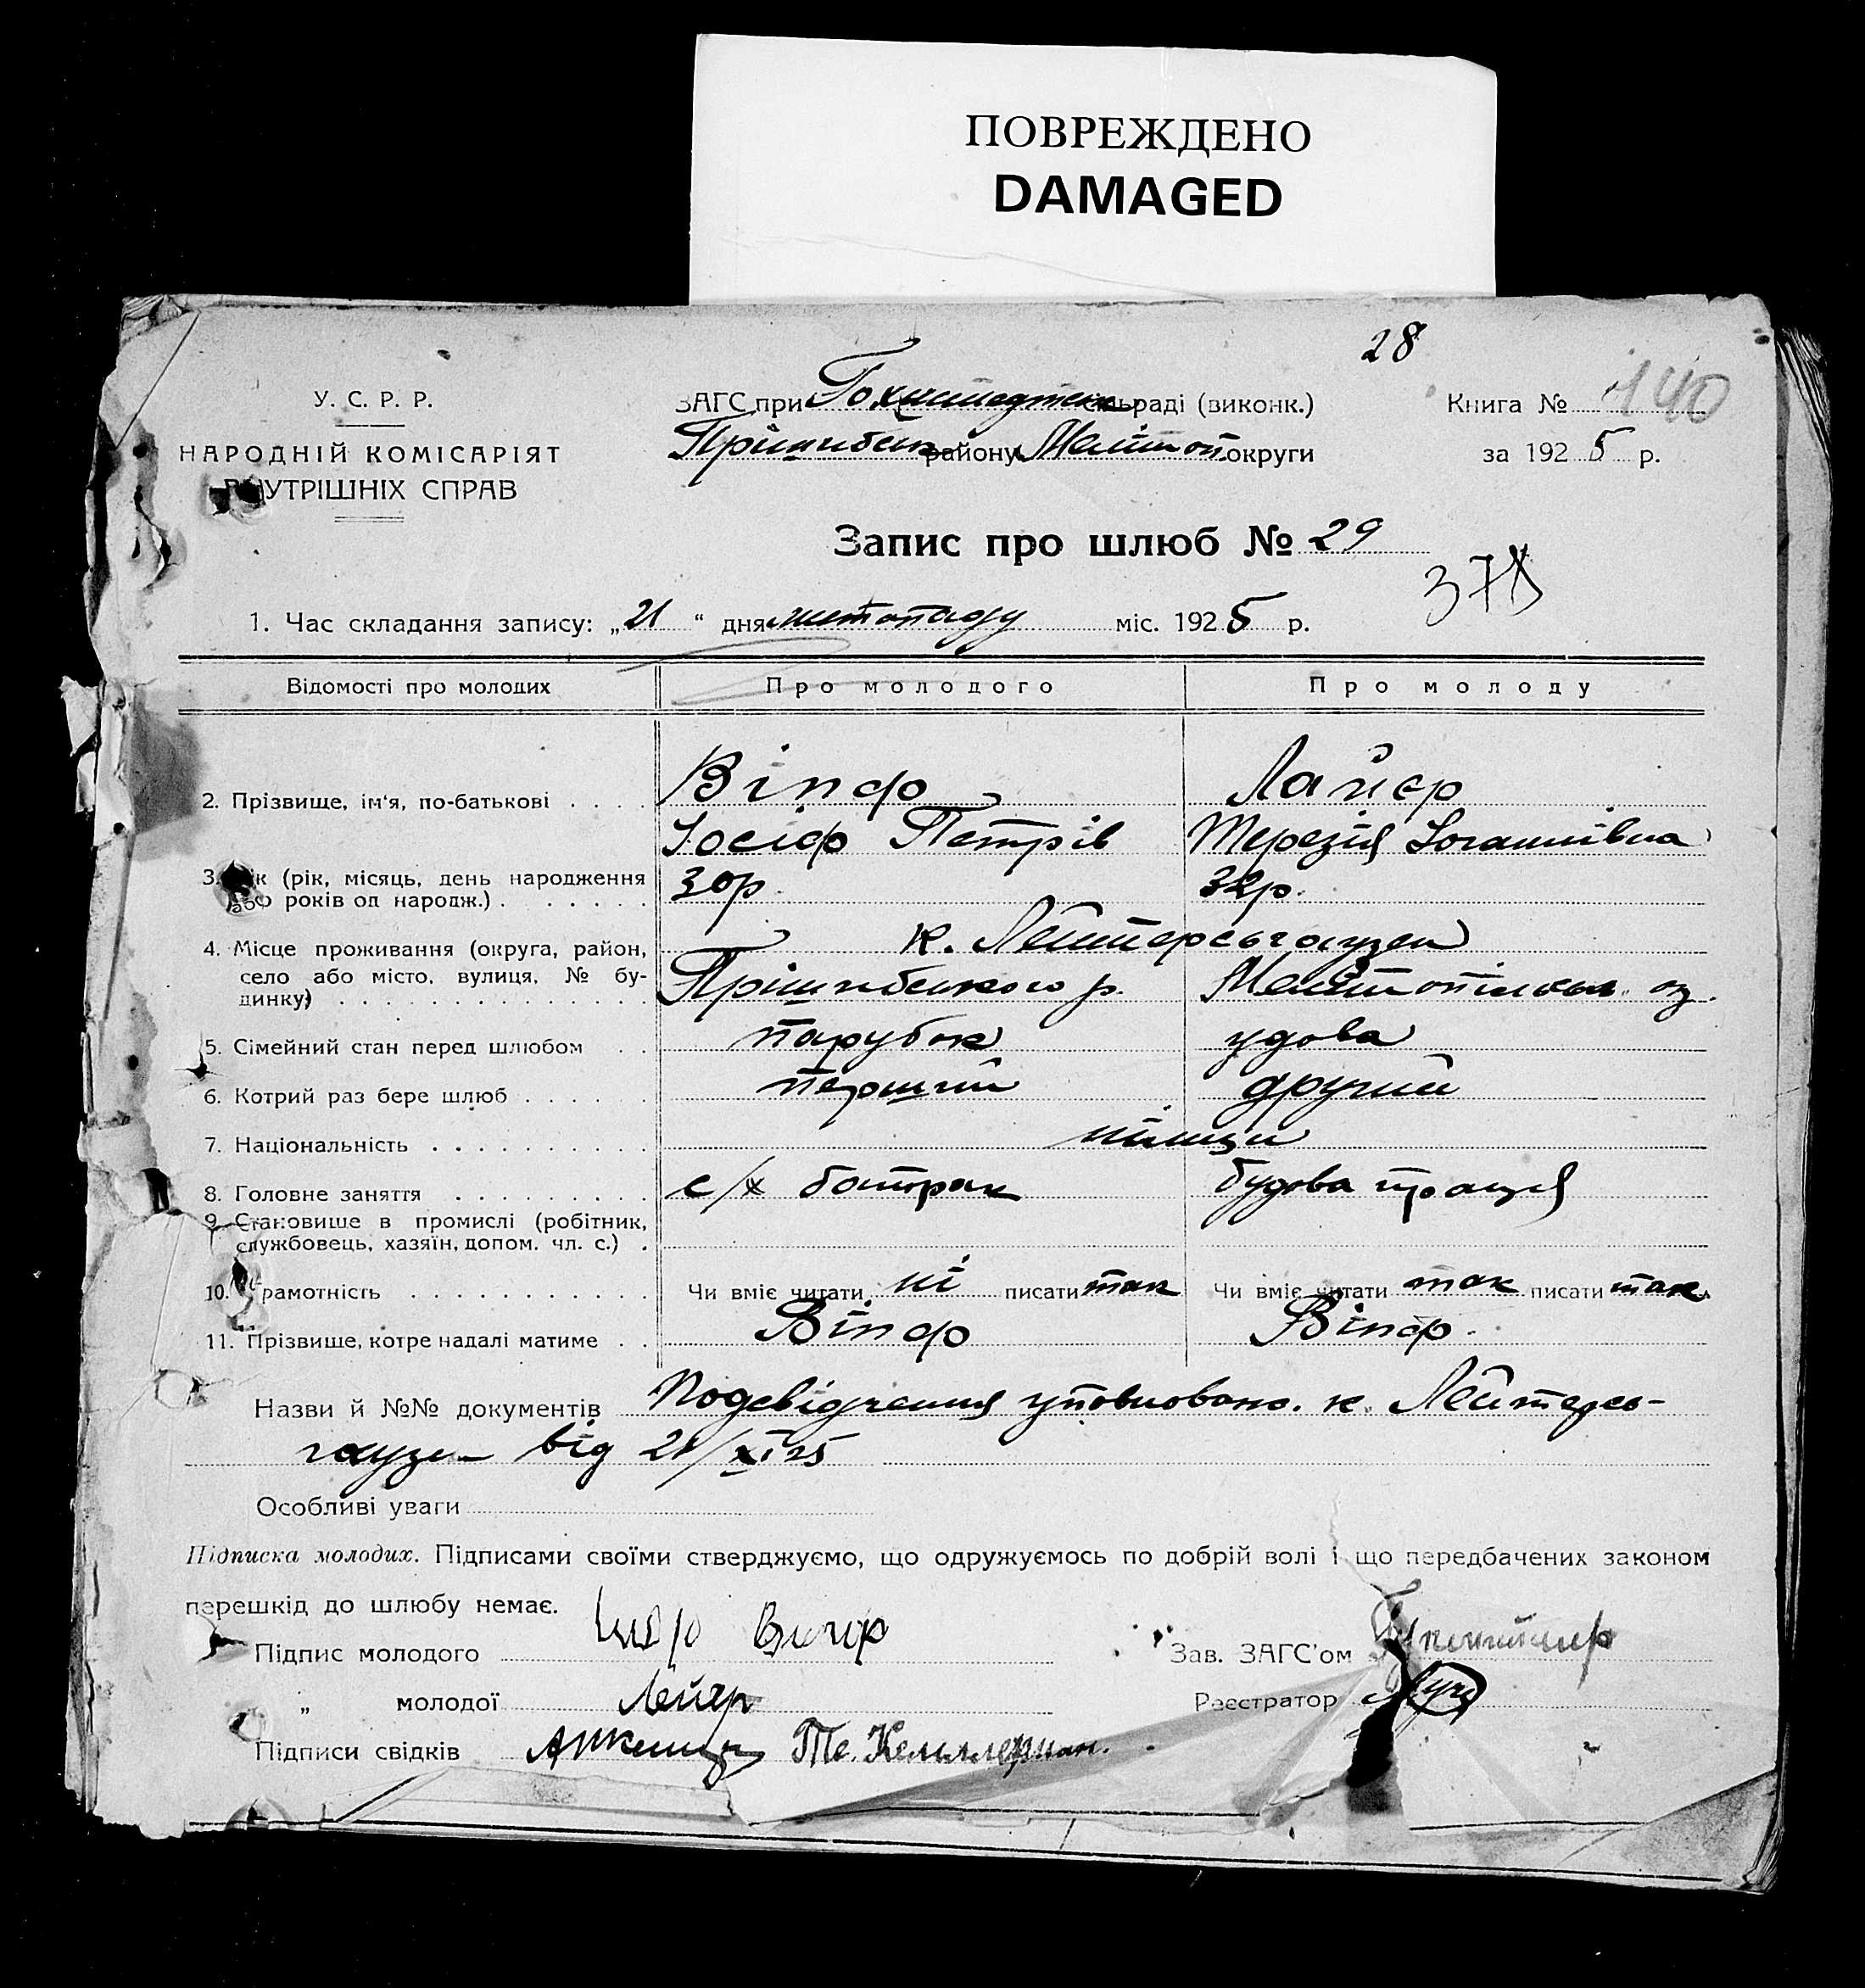 ПОВРЕЖДЕНО
DAMAGED
28
У. С. Р. Р.
ЗАГС при Гохштедтськ раді (виконк.)
Книга № 140
НАРОДНІЙ КОМІСАРІЯТ
Пришибськ району Мелітоп. округи
за 1925 р.
ВНУТРІШНІХ СПРАВ
Запис про шлюб № 29
378
1. Час складання запису: „21“ дня листопаду міс. 1925 р.
Відомості про молодих
Про молодого
Про молоду
2. Прізвище, ім'я, по-батькові
Вінф
Лайєр
Іосіф Петрів
Терезія Іоганнівна
3. Вік (рік, місяць, день народження
або років од народж.)
30р.
32р.
4. Місце проживання (округа, район,
село або місто, вулиця, № бу-
динку)
к. Лейтерсьгаузен
Прішибського р.
Мелітопільськ. ок.
5. Сімейний стан перед шлюбом
парубок
удова
6. Котрий раз бере шлюб
перший
другий
7. Національність
німци
8. Головне заняття
с/х батрак
будова праця
9. Становище в промислі (робітник,
службовець, хазяїн, допом. чл. с.)
10. Грамотність
Чи вміє читати ні писати так
Чи вміє читати так писати так
11. Прізвище, котре надалі матиме
Вінф
Вінф.
Назви й №№ документів Подсвідчення уповноваж. к. Лейтерсь-
гаузен від 21/XI 25
Особливі уваги
Підписка молодих. Підписами своїми стверджуємо, що одружуємось по добрій волі і що передбачених законом
перешкід до шлюбу немає.
Підпис молодого
Зав. ЗАГС'ом
„ молодої Лейяр
Реєстратор
Підписи свідків Те. Келлерман.